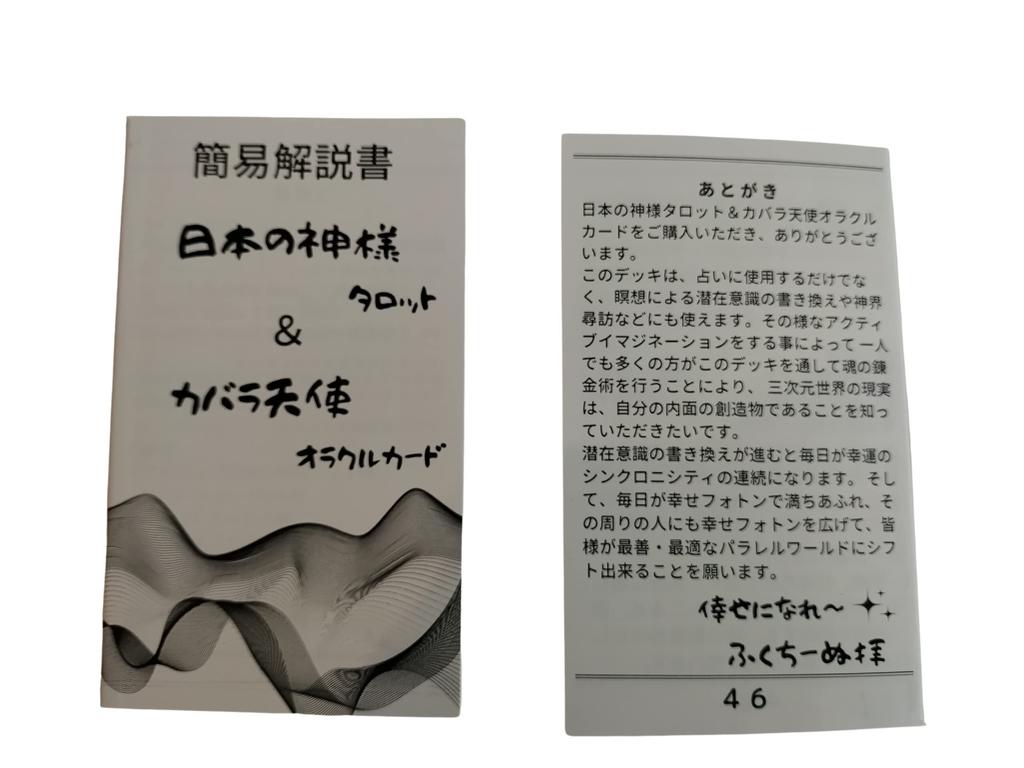 簡易解説書
日本の神様
タロット
&
カバラ天使
オラクルカード
あとがき
日本の神様タロット&カバラ天使オラクル
カードをご購入いただき、ありがとうござ
います。
このデッキは、占いに使用するだけでな
く、瞑想による潜在意識の書き換えや神界
尋訪などにも使えます。その様なアクティ
ブイマジネーションをする事によって一人
でも多くの方がこのデッキを通して魂の錬
金術を行うことにより、三次元世界の現実
は、自分の内面の創造物であることを知っ
ていただきたいです。
潜在意識の書き換えが進むと毎日が幸運の
シンクロニシティの連続になります。そし
て、毎日が幸せフォトンで満ちあふれ、そ
の周りの人にも幸せフォトンを広げて、皆
様が最善・最適なパラレルワールドにシフ
ト出来ることを願います。
倖せになれ〜
ふくちーぬ拝
46